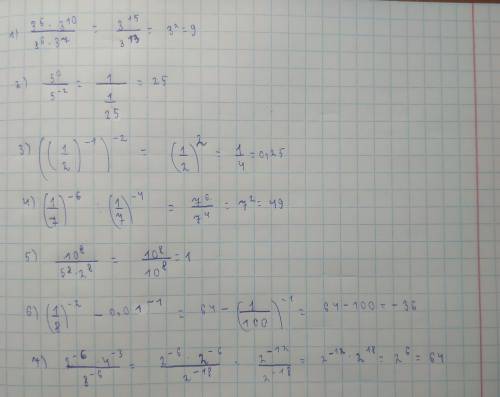 1) (3⁵ · 3¹⁰)/(3⁶ · 3⁷) = 3¹⁵/3¹³ = 3² = 9
2) 5⁰/5⁻² = 1/(1/25) = 25
3) ((1/2)⁻¹)⁻² = (1/2)² = 1/4 = 0,25
4) (1/7)⁻⁶ : (1/7)⁻⁴ = 7⁶/7⁴ = 7² = 49
5) 10⁸/(5⁸ · 2⁸) = 10⁸/10⁸ = 1
6) (1/8)⁻² - 0,01⁻¹ = 64 - (1/100)⁻¹ = 64 - 100 = - 36
7) (2⁻⁶ · 4⁻³)/8⁻⁶ = (2⁻⁶ · 2⁻⁶)/2⁻¹⁸ = 2⁻¹²/2⁻¹⁸ = 2⁻¹² · 2¹⁸ = 2⁶ = 64